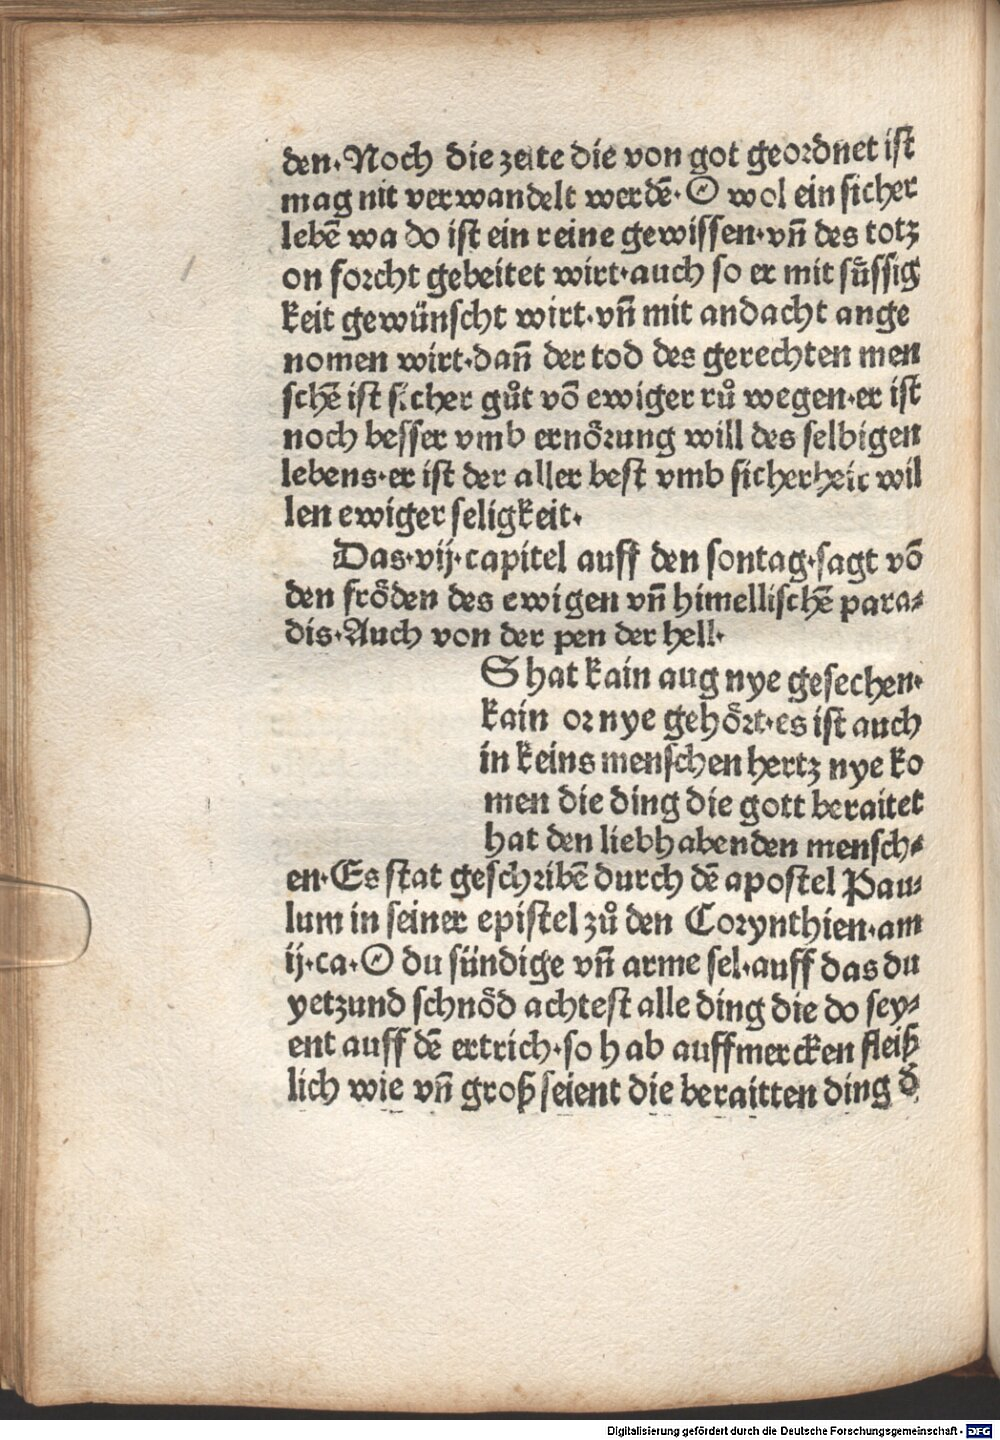 den·Noch die zeite die von got geordnet ist
mag nit verwandelt werdē·O wol ein sicher
lebē wa do ist ein reine gewissen·vn̄ des totz
on forcht gebeitet wirt·auch so er mit sũssig
keit gewünscht wirt·vn̄ mit andacht ange
nomen wirt·dan̄ der tod des gerechten men
schē ist sicher gůt vō ewiger rů wegen·er ist
noch besser vmb ernörung will des selbigen
lebens·er ist der aller best vmb sicherheit wil
len ewiger seligkeit·
Das·vij·capitel auff den sontag·sagt vō
den fröden des ewigen vn̄ himellischē para⸗
dis·Auch von der pen der hell·
S hat kain aug nye gesechen·
kain or nye gehört·es ist auch
in keins menschen hertz nye ko
men die ding die gott beraitet
hat den liebhabenden mensch⸗
en·Es stat geschribē durch dē apostel Pau⸗
lum in seiner epistel zů den Corynthien·am
ij·ca·O du sündige vn̄ arme sel·auff das du
yetzund schnöd achtest alle ding die do sey⸗
ent auff dē ertrich·so hab auffmercken fleiß
lich wie vn̄ groß seient die beraitten ding d̄
Digitalisierung gefördert durch die Deutsche Forschungsgemeinschaft - DFG